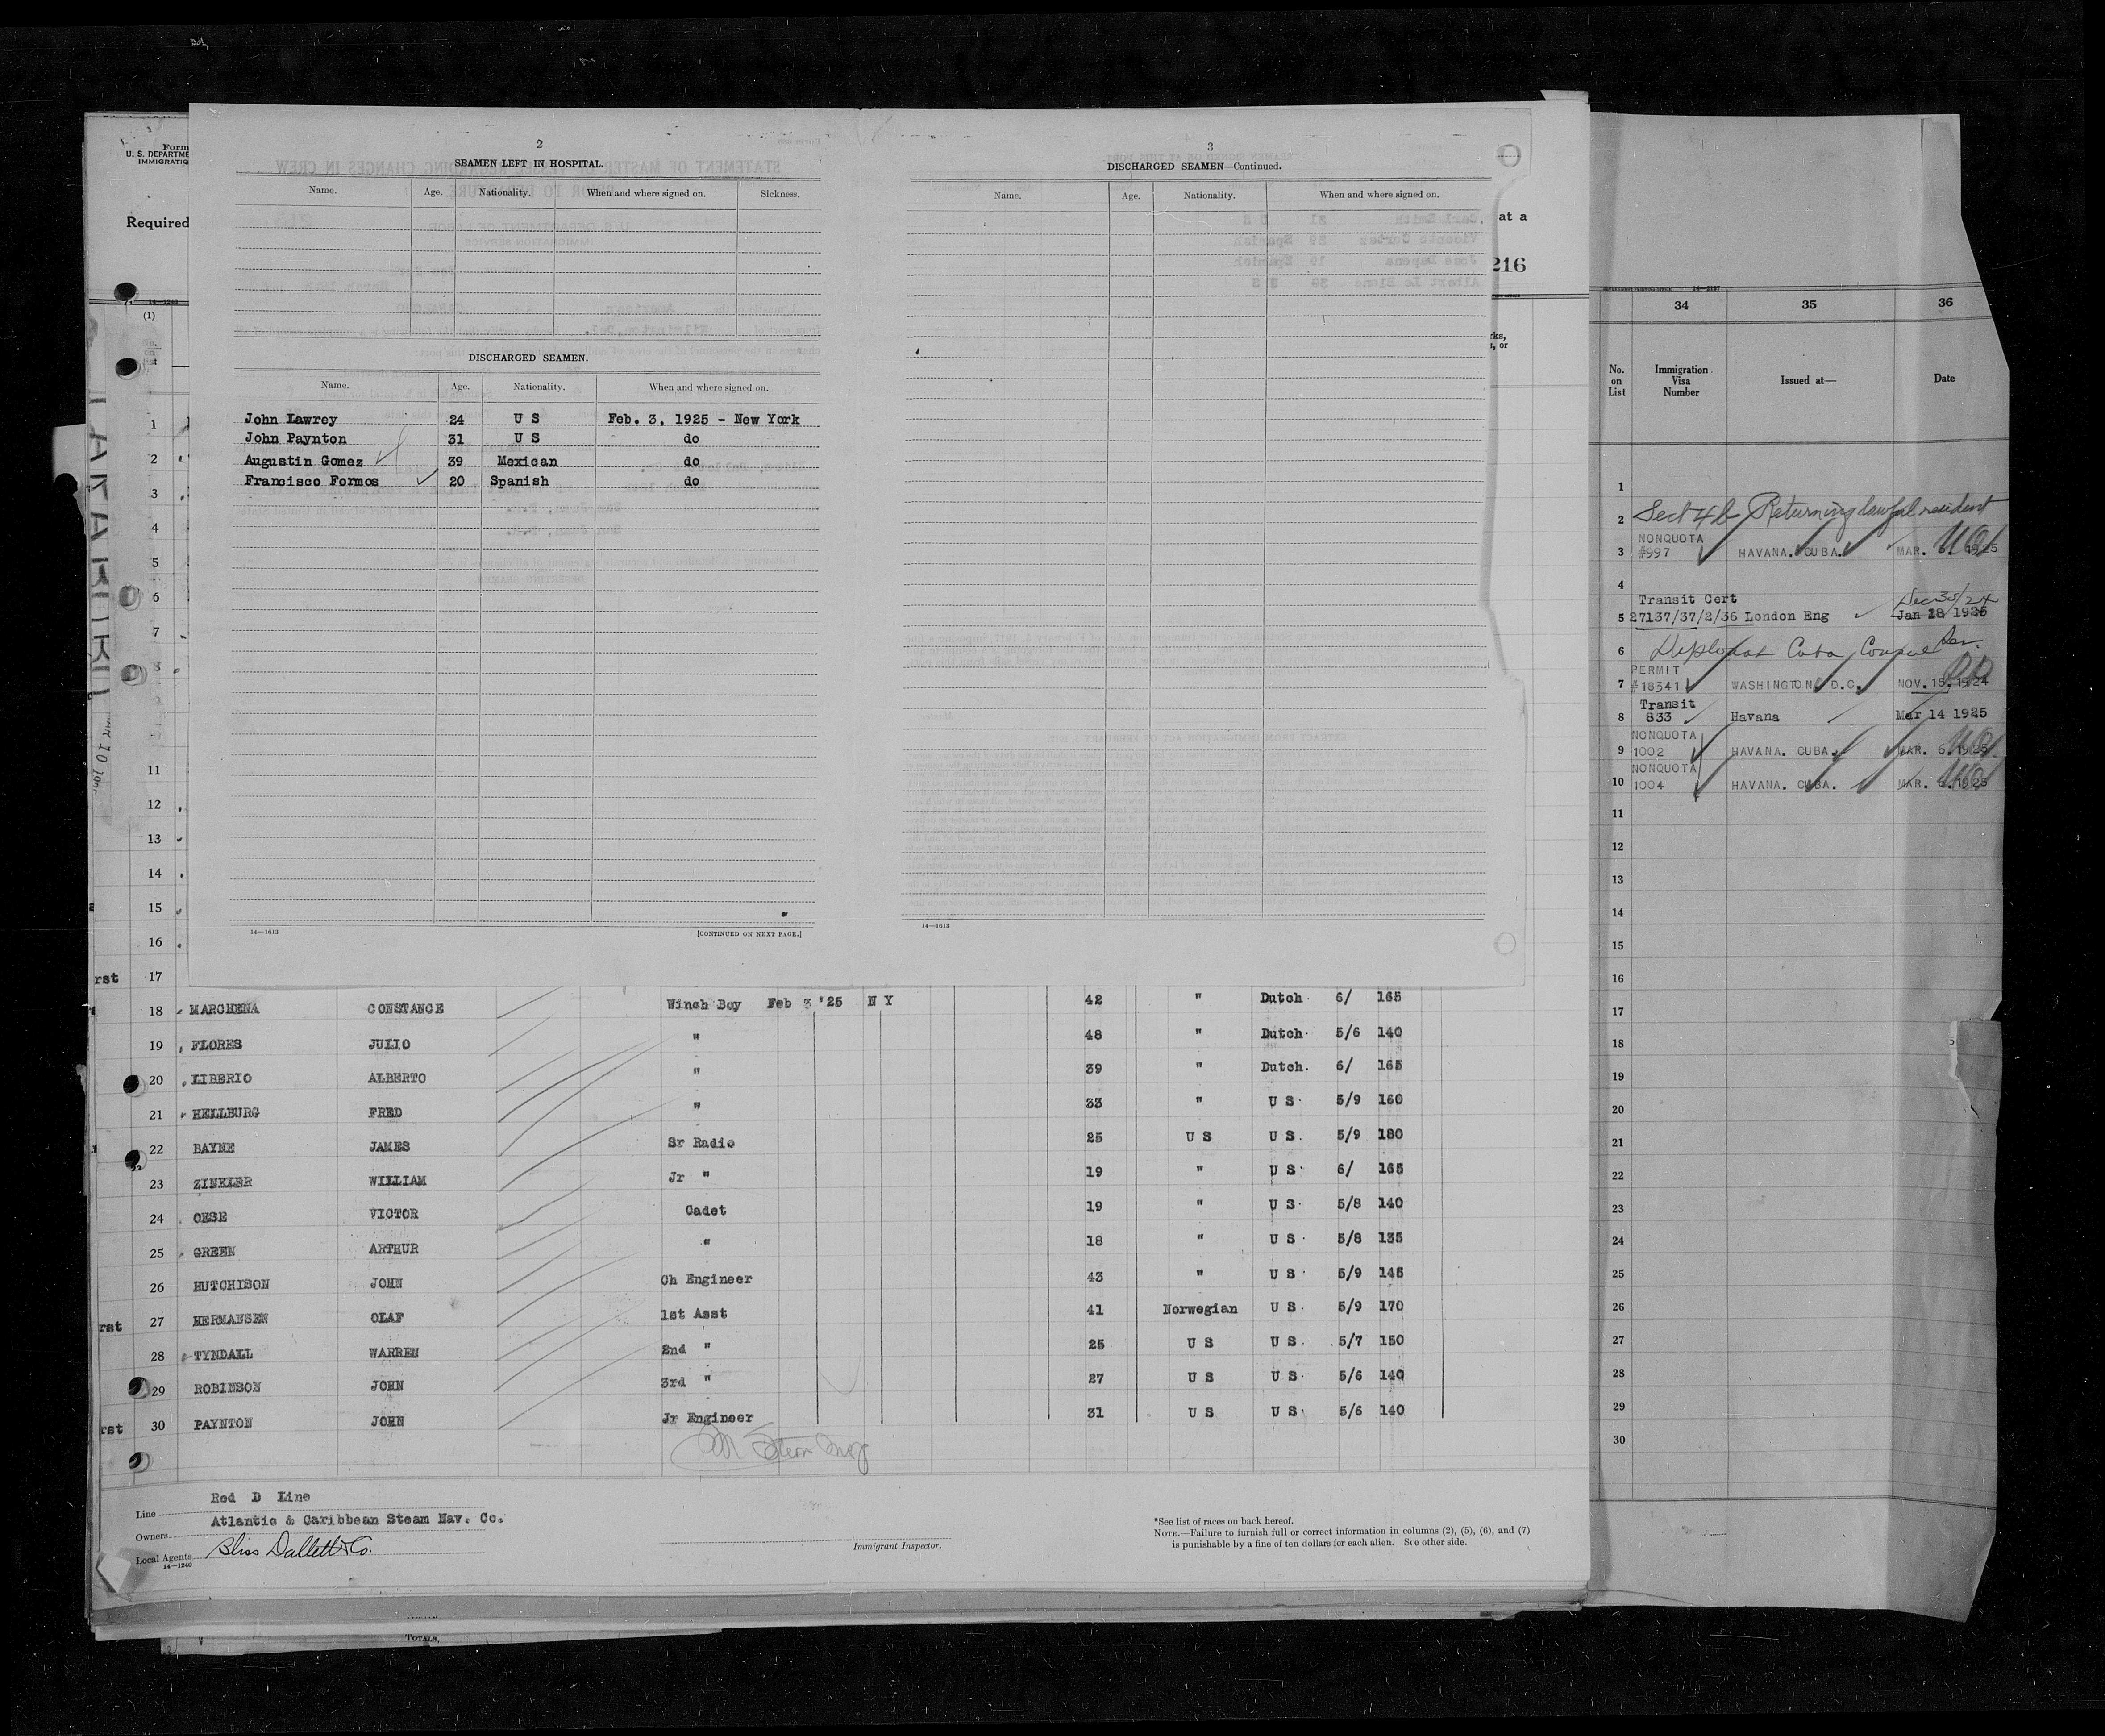 Form
U. S. DEPARTME
IMMIGRATIO
Required
14—1240
(1)
No.
on
list
2
SEAMEN LEFT IN HOSPITAL.
Name. Age. Nationality. When and where signed on. Sickness.
DISCHARGED SEAMEN.
Name. Age. Nationality. When and where signed on.
John Lawrey 24 U S Feb. 3, 1925 - New York
John Paynton 31 U S do
Augustin Gomez 39 Mexican do
Francisco Formos 20 Spanish do
14—1613 [CONTINUED ON NEXT PAGE.]
3
DISCHARGED SEAMEN—Continued.
Name. Age. Nationality. When and where signed on.
14—1613
at a
216
rks,
s, or
1
2
3
4
5
6
7
8
11
12
13
14
15
16
rst 17
18 MARCHENA CONSTANCE Winch Boy Feb 3 '25 N Y 42 " Dutch 6/ 165
19 FLORES JULIO " 48 " Dutch 5/6 140
20 LIBERIO ALBERTO " 39 " Dutch 6/ 165
21 HELLBURG FRED " 33 " U S 5/9 160
22 BAYNE JAMES Sr Radio 25 U S U S 5/9 180
23 ZINKLER WILLIAM Jr " 19 " U S 6/ 165
24 OESE VICTOR Cadet 19 " U S 5/8 140
25 GREEN ARTHUR " 18 " U S 5/8 135
26 HUTCHISON JOHN Ch Engineer 43 " U S 5/9 145
rst 27 HERMANSEN OLAF 1st Asst 41 Norwegian U S 5/9 170
28 TYNDALL WARREN 2nd " 25 U S U S 5/7 150
29 ROBINSON JOHN 3rd " 27 U S U S 5/6 140
rst 30 PAYNTON JOHN Jr Engineer 31 U S U S 5/6 140
Line Red D Line
Owners Atlantic & Caribbean Steam Nav. Co.
Local Agents Bliss Dallett & Co.
14—1240
Immigrant Inspector.
*See list of races on back hereof.
NOTE.—Failure to furnish full or correct information in columns (2), (5), (6), and (7)
is punishable by a fine of ten dollars for each alien. See other side.
TOTALS,
34 35 36
No.
on
List
Immigration
Visa
Number
Issued at—
Date
1
2 Sect 4b Returning lawful resident
NONQUOTA
3 #997 HAVANA. CUBA. MAR. 6. 1925
4
Transit Cert Dec 30/24
5 27137/37/2/36 London Eng Jan 28 1925
6 Diplomat Cuba Consul
PERMIT
7 #18341 WASHINGTON D.C. NOV. 15. 1924
Transit
8 833 Havana Mar 14 1925
NONQUOTA
9 1002 HAVANA. CUBA. MAR. 6. 1925
NONQUOTA
10 1004 HAVANA. CUBA. MAR. 6. 1925
11
12
13
14
15
16
17
18
19
20
21
22
23
24
25
26
27
28
29
30